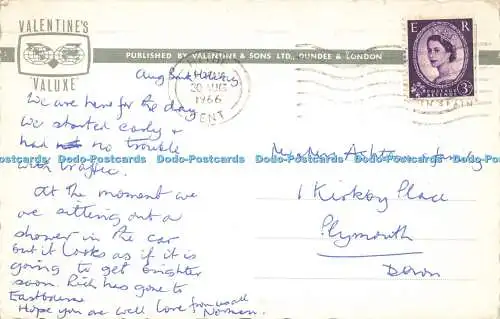 VALENTINE'S
"VALUXE"
PUBLISHED BY VALENTINE & SONS LTD., DUNDEE & LONDON
E R
POSTAGE REVENUE
3D
30 AUG
1966
KENT
Aug Bank Holiday
We are here for the day
We started early &
had no trouble
with traffic.
At the moment we
are sitting out a
shower in the car
but it looks as if it is
going to get brighter
soon. Rich has gone to
Eastbourne
Hope you are well Love from us all
Norman.
1 Kirkby Place
Plymouth
Devon
Dodo-Postcards Dodo-Postcards Dodo-Postcards Dodo-Postcards Dodo-Postcards